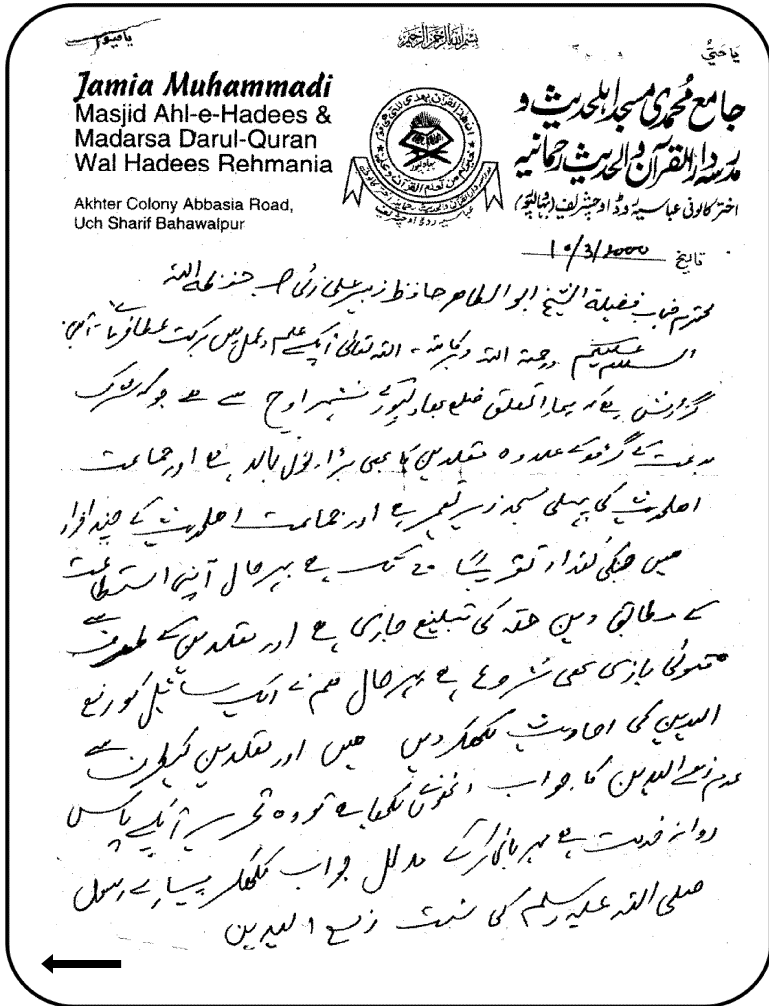 یا حیُّ
یا قیوم
بِسْمِ اللّٰهِ الرَّحْمٰنِ الرَّحِيْمِ
Jamia Muhammadi
Masjid Ahl-e-Hadees &
Madarsa Darul-Quran
Wal Hadees Rehmania
Akhter Colony Abbasia Road,
Uch Sharif Bahawalpur
جامع محمدی مسجد اہلحدیث و
مدرسہ دارالقرآن والحدیث رحمانیہ
اختر کالونی عباسیہ روڈ اوچشریف (بہاولپور)
تاریخ 10/3/2000
محترم جناب فضیلۃ الشیخ ابو الطاہر حافظ زبیر علی زئی صاحب حفظہ اللہ
السلام علیکم ورحمۃ اللہ وبرکاتہ ۔ اللہ تعالیٰ آپکے علم و عمل میں برکت عطا فرمائے آمین
گزارش ہے کہ ہمارا تعلق ضلع بہاولپور کے شہر اوچ سے ہے جو کہ شرک
بدعت کے گڑھ کے علاوہ مقلدین کا بھی بڑا بول بالا ہے اور جماعت
اہلحدیث کی پہلی مسجد زیر تعمیر ہے اور جماعت اہلحدیث کے چند افراد
ہیں جنکی تعداد تقریباً تک ہے بہرحال اپنی استطاعت
کے مطابق دین حقہ کی تبلیغ جاری ہے اور مقلدین کے طرف سے
فتویٰ بازی بھی شروع ہے بہرحال ہم نے ایک سائل کو رفع
الیدین کی احادیث لکھکر دیں ہیں اور مقلدین کیطرف سے
عدم رفع الیدین کا جواب انھوں لکھا ہے تو وہ تحریر آپکے پاس
روانہ خدمت ہے مہربانی کرکے مدلل جواب لکھکر پیارے رسول
صلی اللہ علیہ وسلم کی سنت رفع الیدین